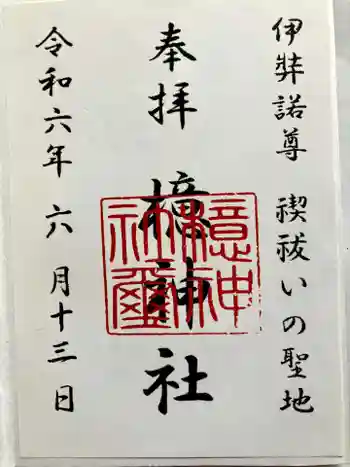 伊弉諾尊 禊祓いの聖地
奉拝 檍神社
令和六年 六月十三日